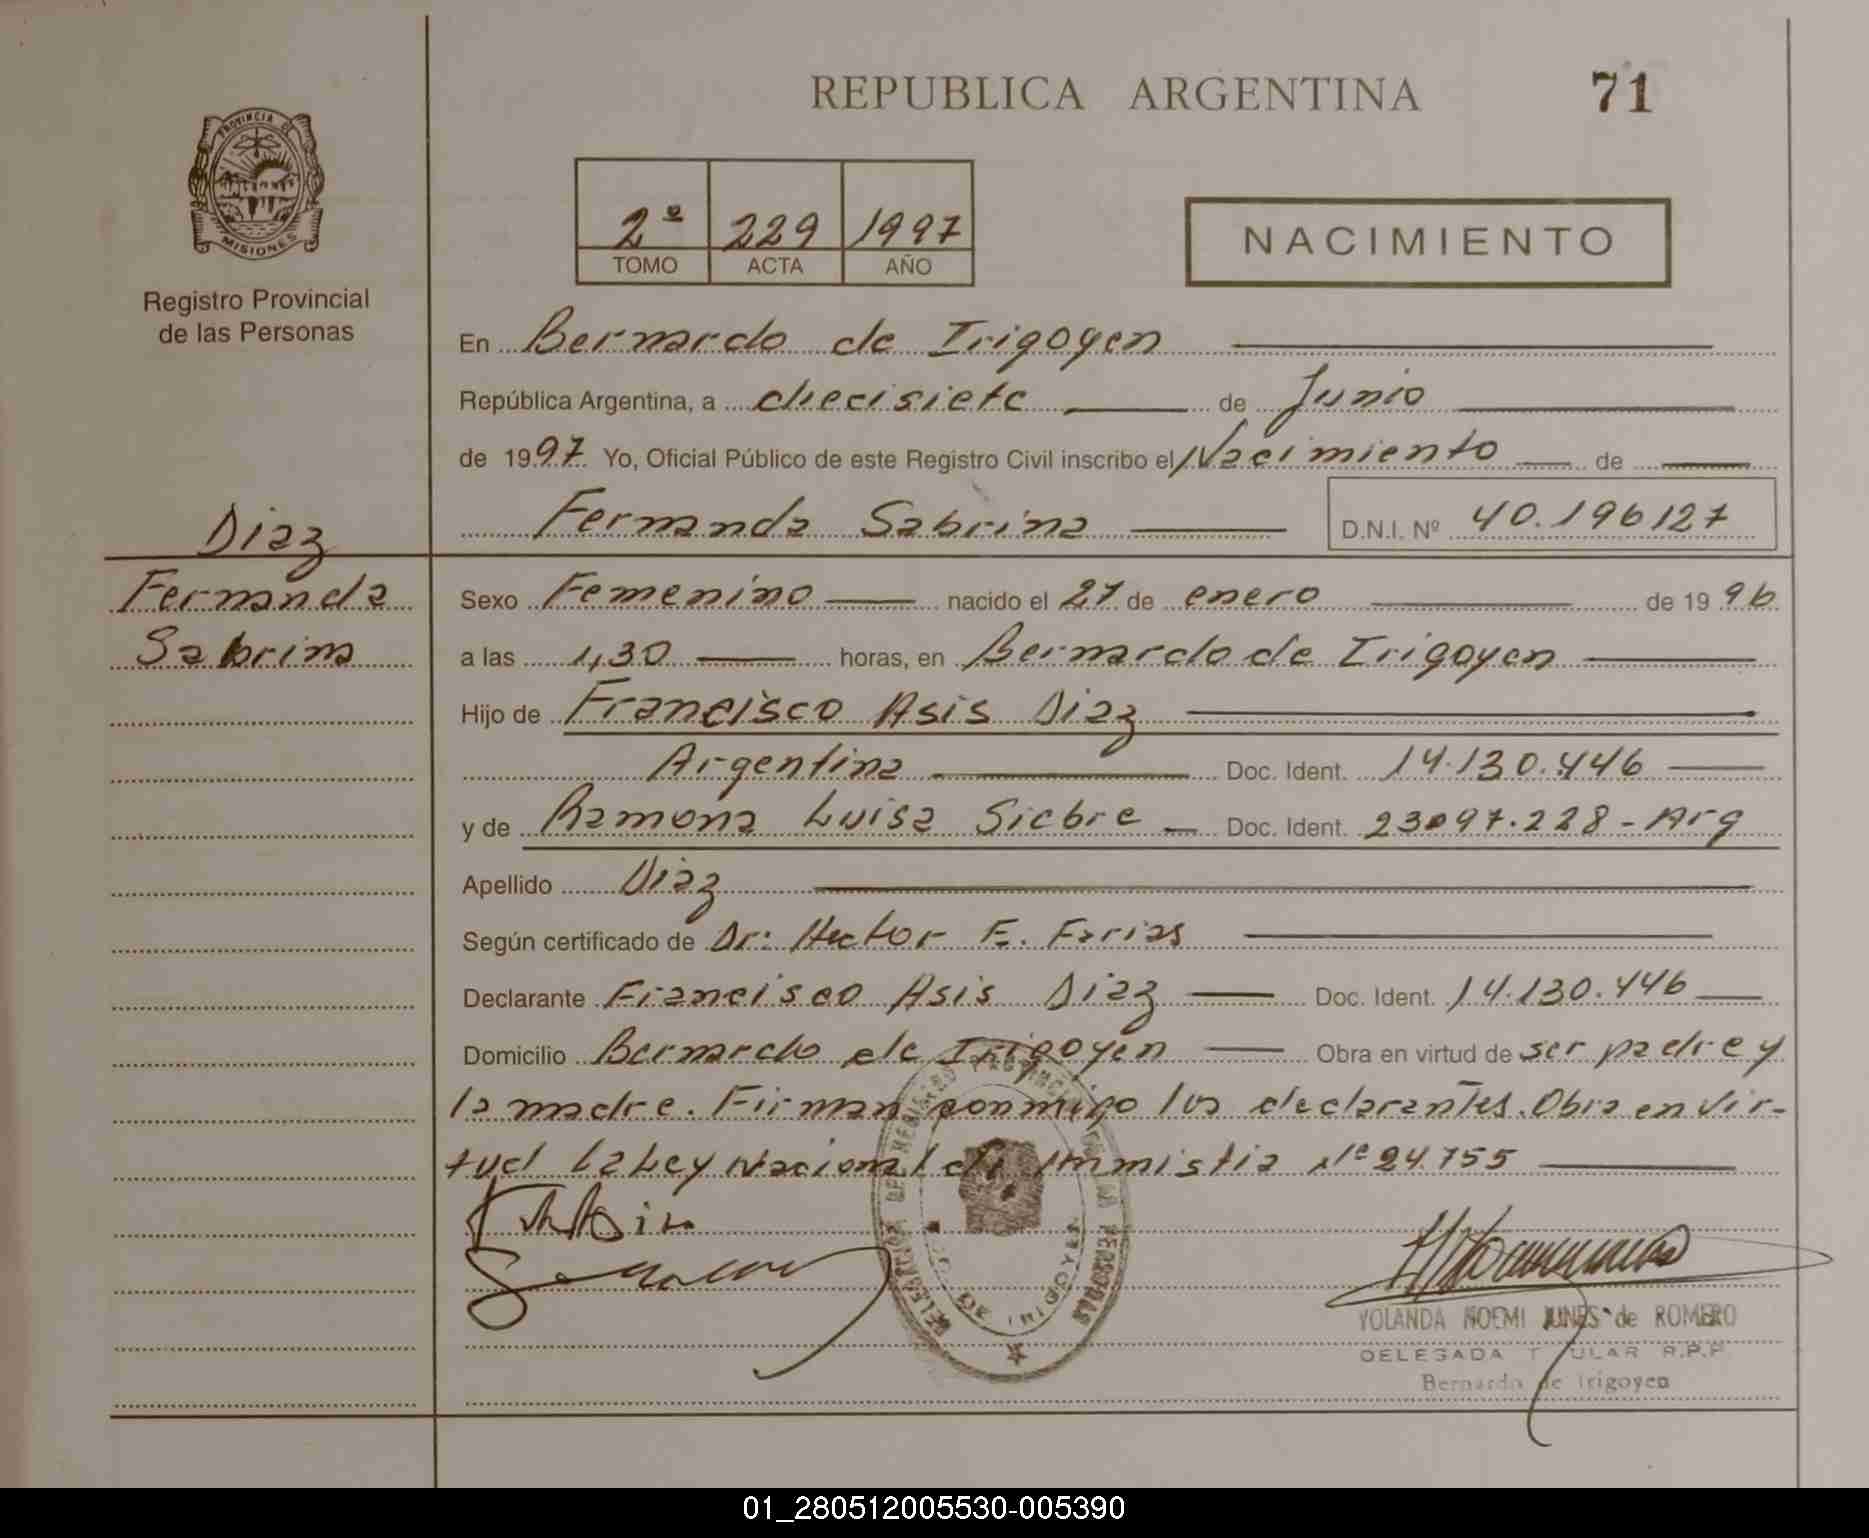 REPUBLICA ARGENTINA
71
PROVINCIA DE
MISIONES
Registro Provincial
de las Personas
2º 229 1997
TOMO ACTA AÑO
NACIMIENTO
En Bernardo de Irigoyen
República Argentina, a diecisiete de Junio
de 1997 Yo, Oficial Público de este Registro Civil inscribo el Nacimiento de
Fernanda Sabrina D.N.I. Nº 40.196127
Diaz
Fernanda
Sabrina
Sexo Femenino nacido el 27 de enero de 1996
a las 1,30 horas, en Bernardo de Irigoyen
Hijo de Francisco Asis Diaz
Argentina Doc. Ident. 14.130.446
y de Ramona Luisa Siebre Doc. Ident. 23097.228 - Arg
Apellido Diaz
Según certificado de Dr. Hector E. Farias
Declarante Francisco Asis Diaz Doc. Ident. 14.130.446
Domicilio Bernardo de Irigoyen Obra en virtud de ser padre y
la madre. Firman conmigo los declarantes. Obra en vir-
tud la Ley Nacional de Ammistia Nº 24.755
YOLANDA NOEMI JUNES de ROMERO
DELEGADA T ULAR R.P.P.
Bernardo de Irigoyen
01_280512005530-005390